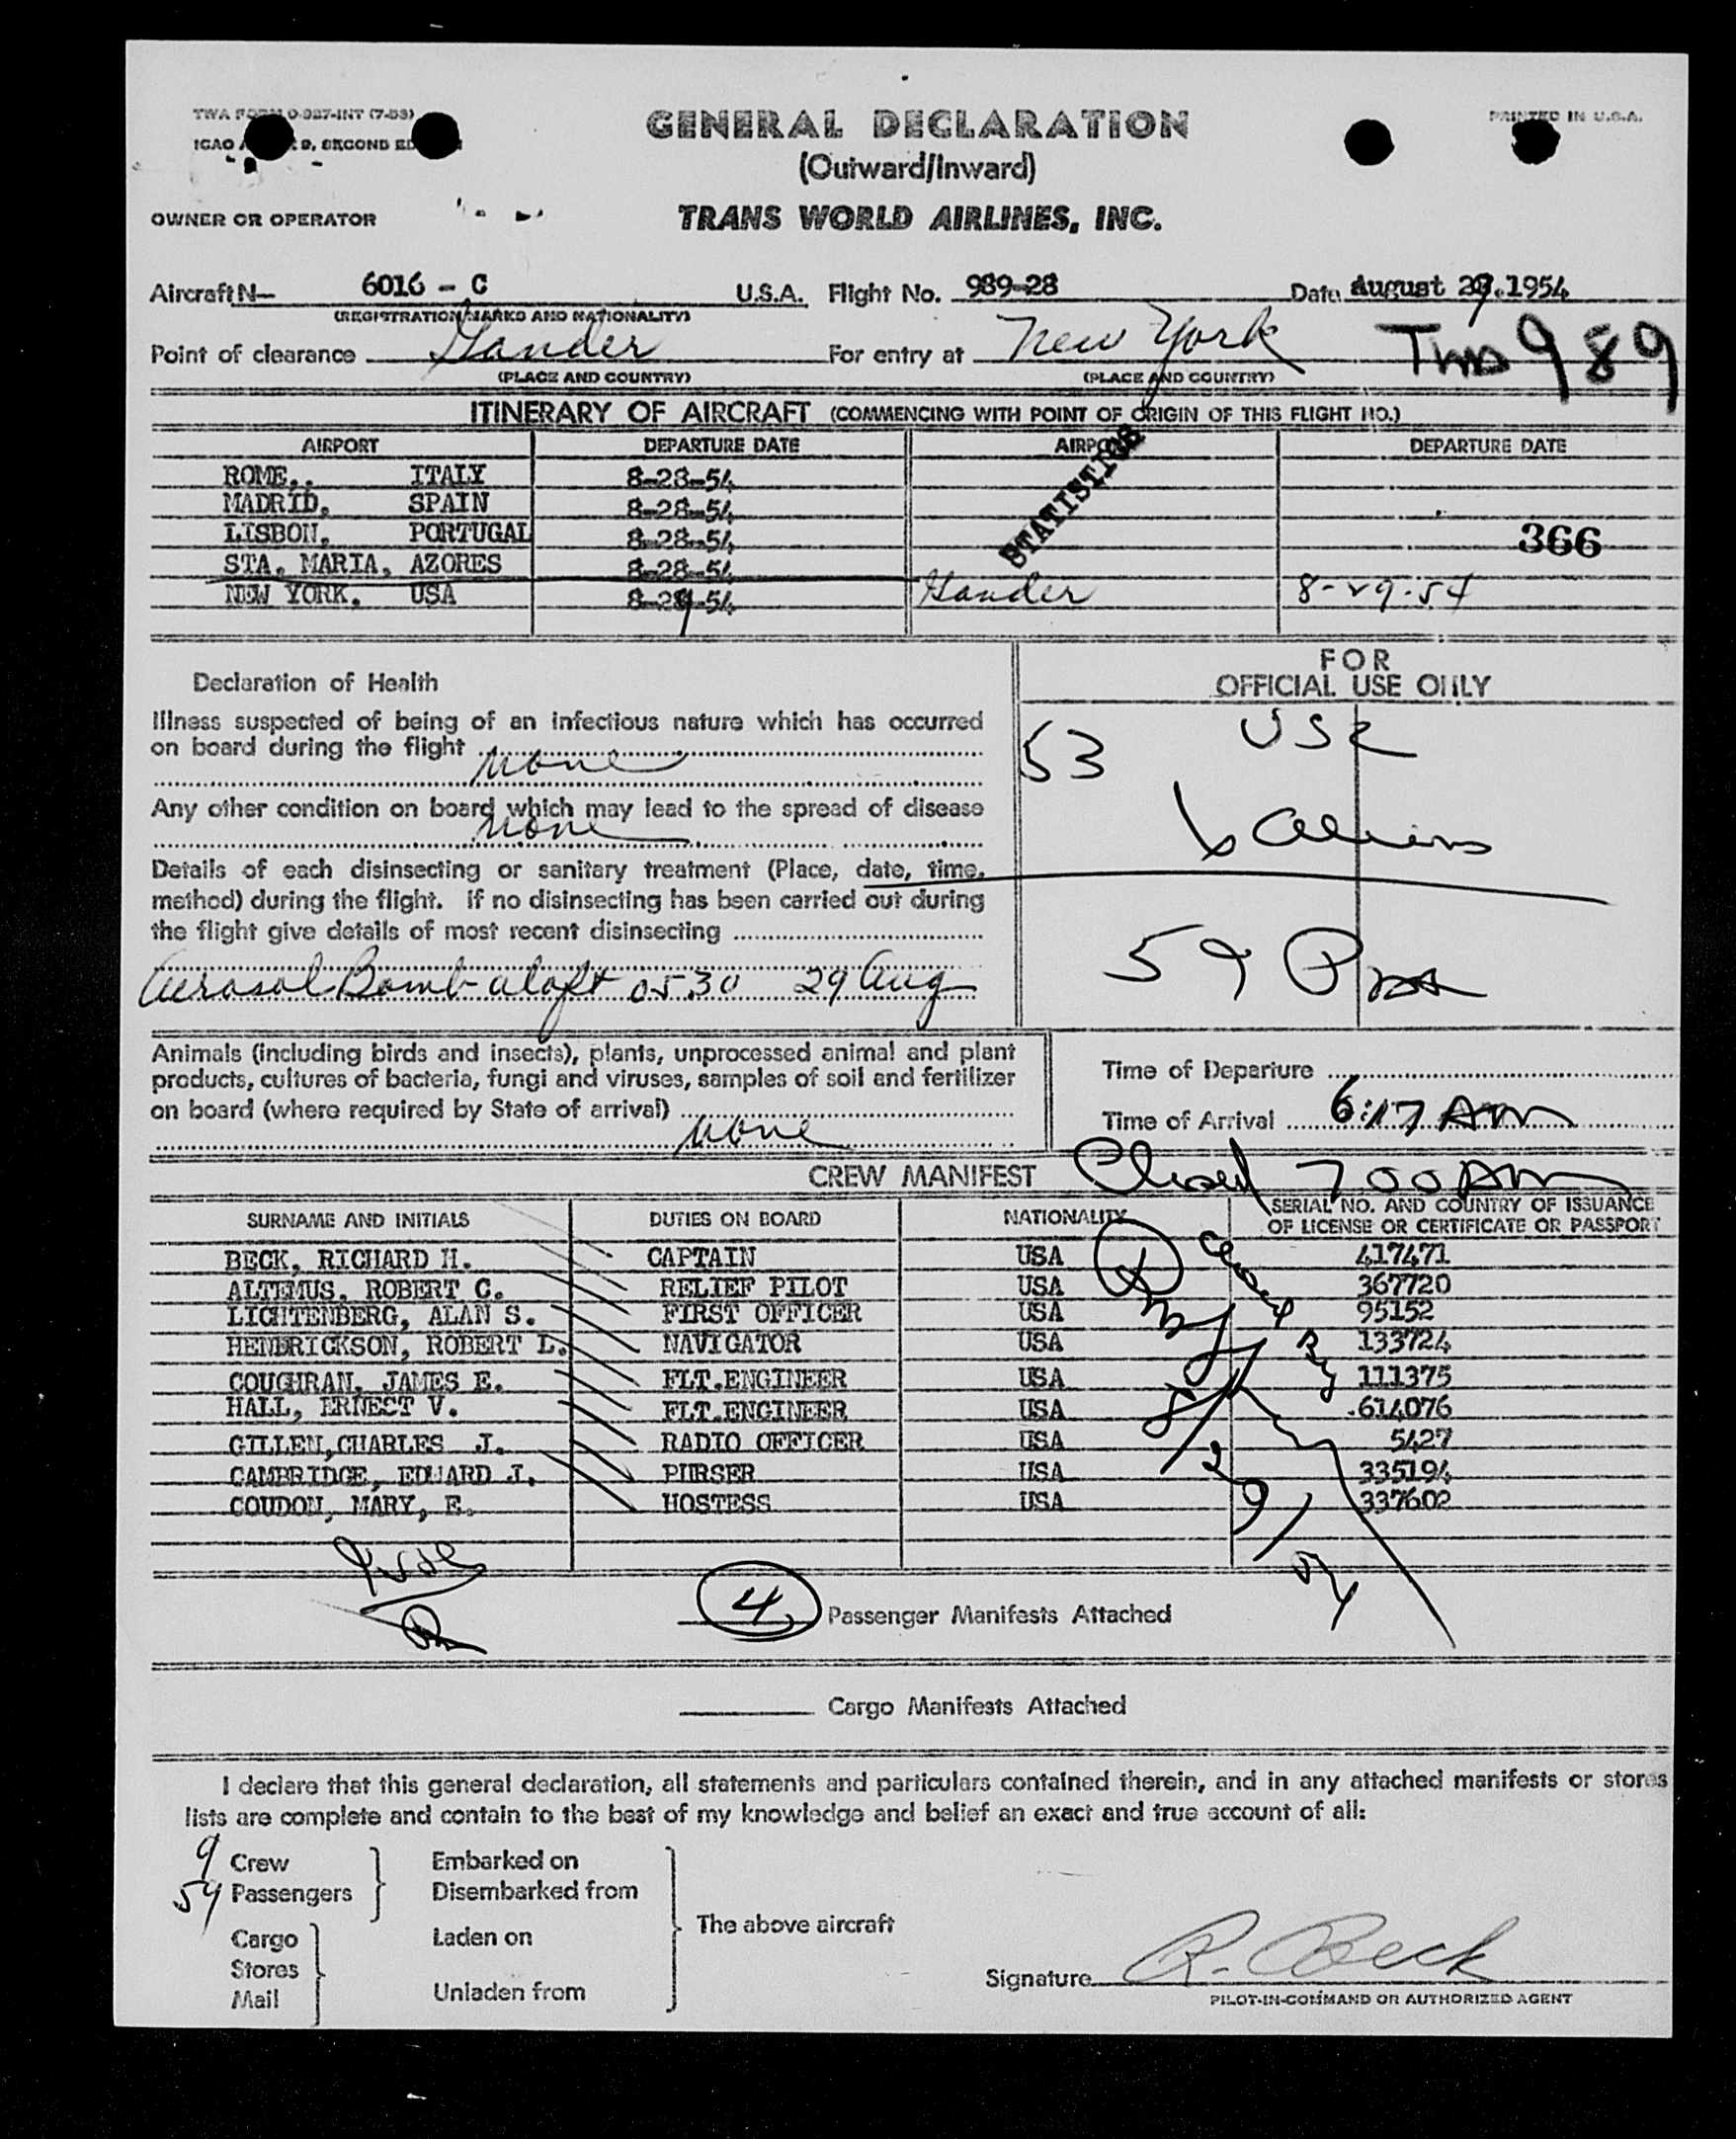 TWA FORM 0-927-INT (7-53)
PRINTED IN U.S.A.
ICAO 9, SECOND
GENERAL DECLARATION
(Outward/Inward)
OWNER OR OPERATOR
TRANS WORLD AIRLINES, INC.
Aircraft N— 6016 - C U.S.A. Flight No. 989-28 Date August 29, 1954
(REGISTRATION MARKS AND NATIONALITY)
Point of clearance Gander For entry at New York
(PLACE AND COUNTRY) (PLACE AND COUNTRY)
989
ITINERARY OF AIRCRAFT (COMMENCING WITH POINT OF ORIGIN OF THIS FLIGHT NO.)
AIRPORT DEPARTURE DATE AIRPORT DEPARTURE DATE
STATISTICS
ROME, ITALY 8-28-54
MADRID, SPAIN 8-28-54
LISBON, PORTUGAL 8-28-54
366
STA. MARIA, AZORES 8-28-54
NEW YORK, USA 8-29-54 Gander 8-29-54
Declaration of Health
Illness suspected of being of an infectious nature which has occurred
on board during the flight none
Any other condition on board which may lead to the spread of disease
none
Details of each disinsecting or sanitary treatment (Place, date, time,
method) during the flight. If no disinsecting has been carried out during
the flight give details of most recent disinsecting
Aerosol Bomb aloft 0530 29 Aug
FOR
OFFICIAL USE ONLY
53 USC
6 Aliens
59 Pass
Animals (including birds and insects), plants, unprocessed animal and plant
products, cultures of bacteria, fungi and viruses, samples of soil and fertilizer
on board (where required by State of arrival)
none
Time of Departure
Time of Arrival 6:17 AM
Closed 700 AM
CREW MANIFEST
SURNAME AND INITIALS DUTIES ON BOARD NATIONALITY SERIAL NO. AND COUNTRY OF ISSUANCE
OF LICENSE OR CERTIFICATE OR PASSPORT
BECK, RICHARD H. CAPTAIN USA 417471
ALTEMUS, ROBERT C. RELIEF PILOT USA 367720
LICHTENBERG, ALAN S. FIRST OFFICER USA 95152
HENDRICKSON, ROBERT L. NAVIGATOR USA 133724
COUGHRAN, JAMES E. FLT.ENGINEER USA 111375
HALL, ERNEST V. FLT.ENGINEER USA 614076
GILLEN,CHARLES J. RADIO OFFICER USA 5427
CAMBRIDGE, EDWARD J. PURSER USA 335194
COUDON, MARY, E. HOSTESS USA 337602
8/29/54
4 Passenger Manifests Attached
Cargo Manifests Attached
I declare that this general declaration, all statements and particulars contained therein, and in any attached manifests or stores
lists are complete and contain to the best of my knowledge and belief an exact and true account of all:
9 Crew Embarked on
59 Passengers Disembarked from
The above aircraft
Cargo Laden on
Stores
Mail Unladen from
Signature R. Beck
PILOT-IN-COMMAND OR AUTHORIZED AGENT